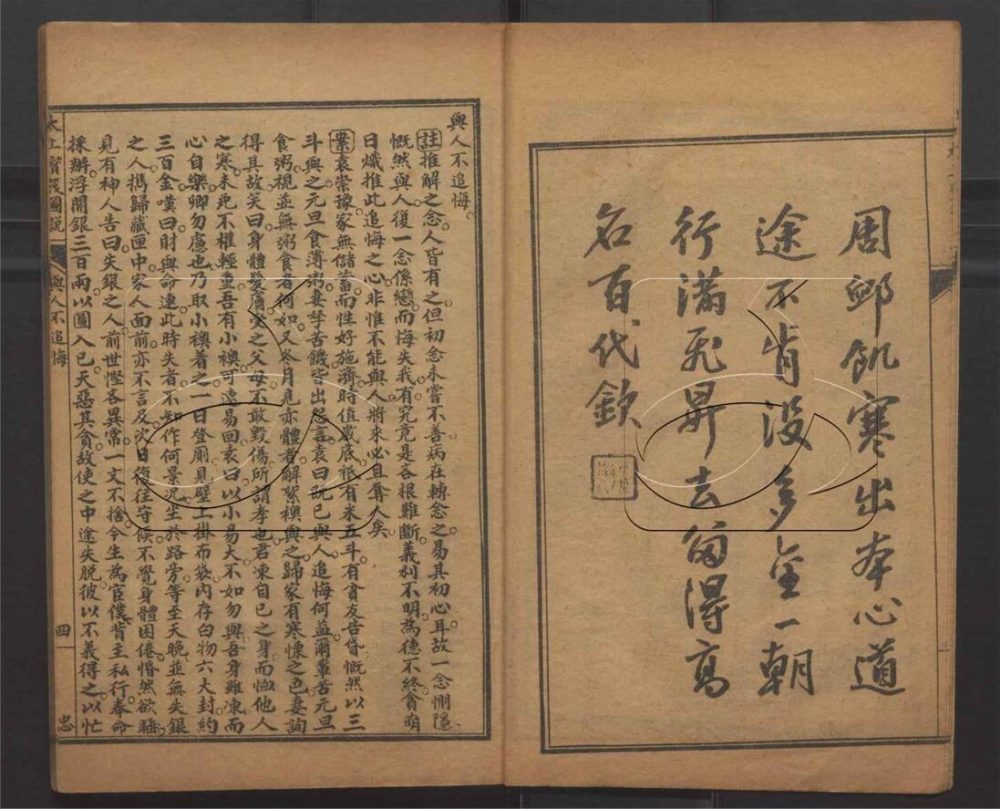 周邱飢寒出本心道
途不肯沒多金一朝
行滿飛昇去留得高
名百代欽
與人不追悔
註推解之念人皆有之但初念未嘗不善病在轉念之易其初心耳故一念惻隱
慨然與人復一念係戀而悔失我有究竟是吝根難斷義利不明為德不終貪萌
日熾推此追悔之心非惟不能與人將來必且奪人矣
案袁崇家無儲蓄而性好施濟時值歲底秖有米五斗有貧友告貸慨然以三
斗與之元旦食薄粥妻孥苦饑皆出怨言袁曰既已與人追悔何益爾輩苦元旦
食粥視並無粥食者何如又冬月見赤體者解絮襖與之歸家有寒慄之色妻詢
得其故笑曰身體髮膚受之父母不敢毀傷所謂孝也君凍自己之身而恤他人
之寒未免不權輕重吾有小襖可速易回袁曰以小易大不如勿與吾身雖凍而
心自樂卿勿慮也乃取小襖着之一日登廁見壁上掛布袋內存白物六大封約
三百金嘆曰財與命連此時失者不知作何景况坐於路旁等至天晚並無失銀
之人携歸藏匣中家人面前亦不言及次日復往守候不覺身體困倦惛然欲睡
見有神人告曰失銀之人前世慳吝異常一文不捨今生為宦僕背主私行奉命
採辦浮開銀三百兩以圖入己天惡其貪故使之中途失脫彼以不義得之以忙
太上寶筏圖說
與人不追悔
四
忠